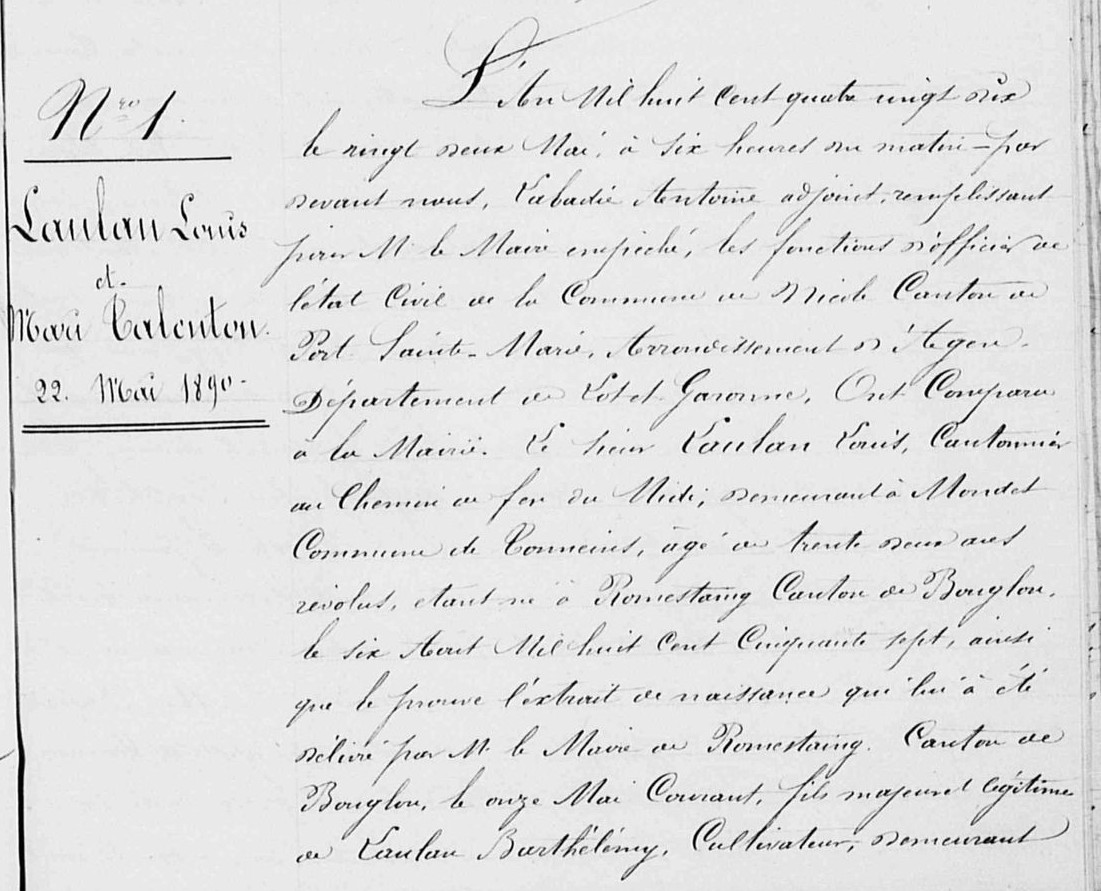 Nro 1.
Laulan Louis
et
Marie Talenton.
22. Mai 1890
L'An Mil huit Cent quatre vingt dix
le vingt deux Mai, à six heures du matin par
devant nous, Labadie Antoine adjoint, remplissant
pour Mr le Maire empêché, les fonctions d'officier de
l'état Civil de la Commune de Nicole Canton de
Port Sainte-Marie, Arrondissement d'Agen.
Département de Lot et Garonne, Ont Comparu
à la Mairie. Le Sieur Laulan Louis, Cantonnier
au Chemin de fer du Midi, demeurant à Mondet
Commune de Tonneins, âgé de trente deux ans
révolus, étant né à Romestaing Canton de Bouglon,
le six Aout Mil huit Cent Cinquante sept, ainsi
que le prouve l'éxtrait de naissance qui lui à été
délivré par Mr le Maire de Romestaing. Canton de
Bouglon, le onze Mai Courant, fils majeur et légitime
de Laulan Barthélémy, Cultivateur, demeurant